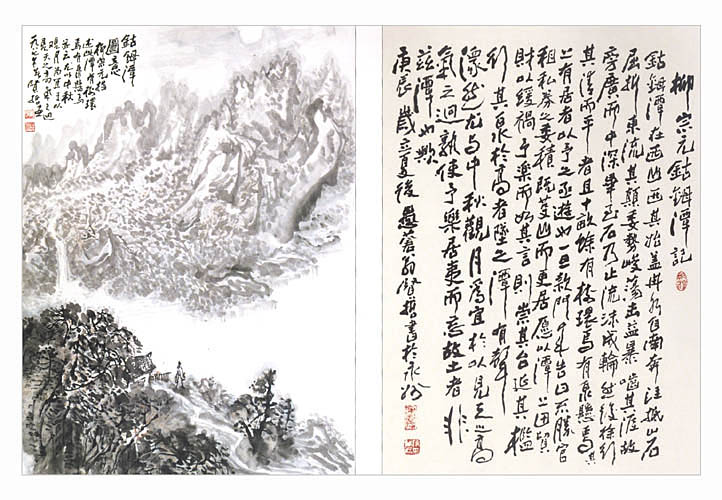 柳宗元鈷鉧潭記
鈷鉧潭在西山西其始蓋冉水自南奔注抵山石
屈折東流其顛委勢峻蕩擊益暴嚙其涯故
旁廣而中深畢至石乃止流沫成輪然後徐行
其清而平者且十畝餘有樹環焉有泉懸焉其
上有居者以予之亟遊也一旦款門來告曰不勝官
租私券之委積既芟山而更居愿以潭上田貿
財以緩禍予樂而如其言則崇其台延其檻
行其泉於高者墜之潭有聲
潀然尤与中秋觀月為宜於以見天之高
氣之迥孰使予樂居夷而忘故土者非
茲潭也歟
庚辰歲立夏後蒼翁賢哲書於永州
鈷鉧潭
圖意
柳宗元
潭有樹環
焉有泉懸焉
中秋
觀月為宜於以
見天之高氣之迥